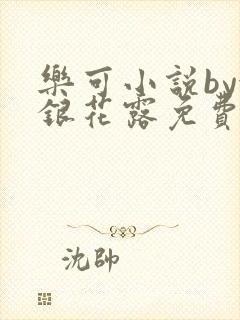 樂可小説by
銀花露免費
沈帥